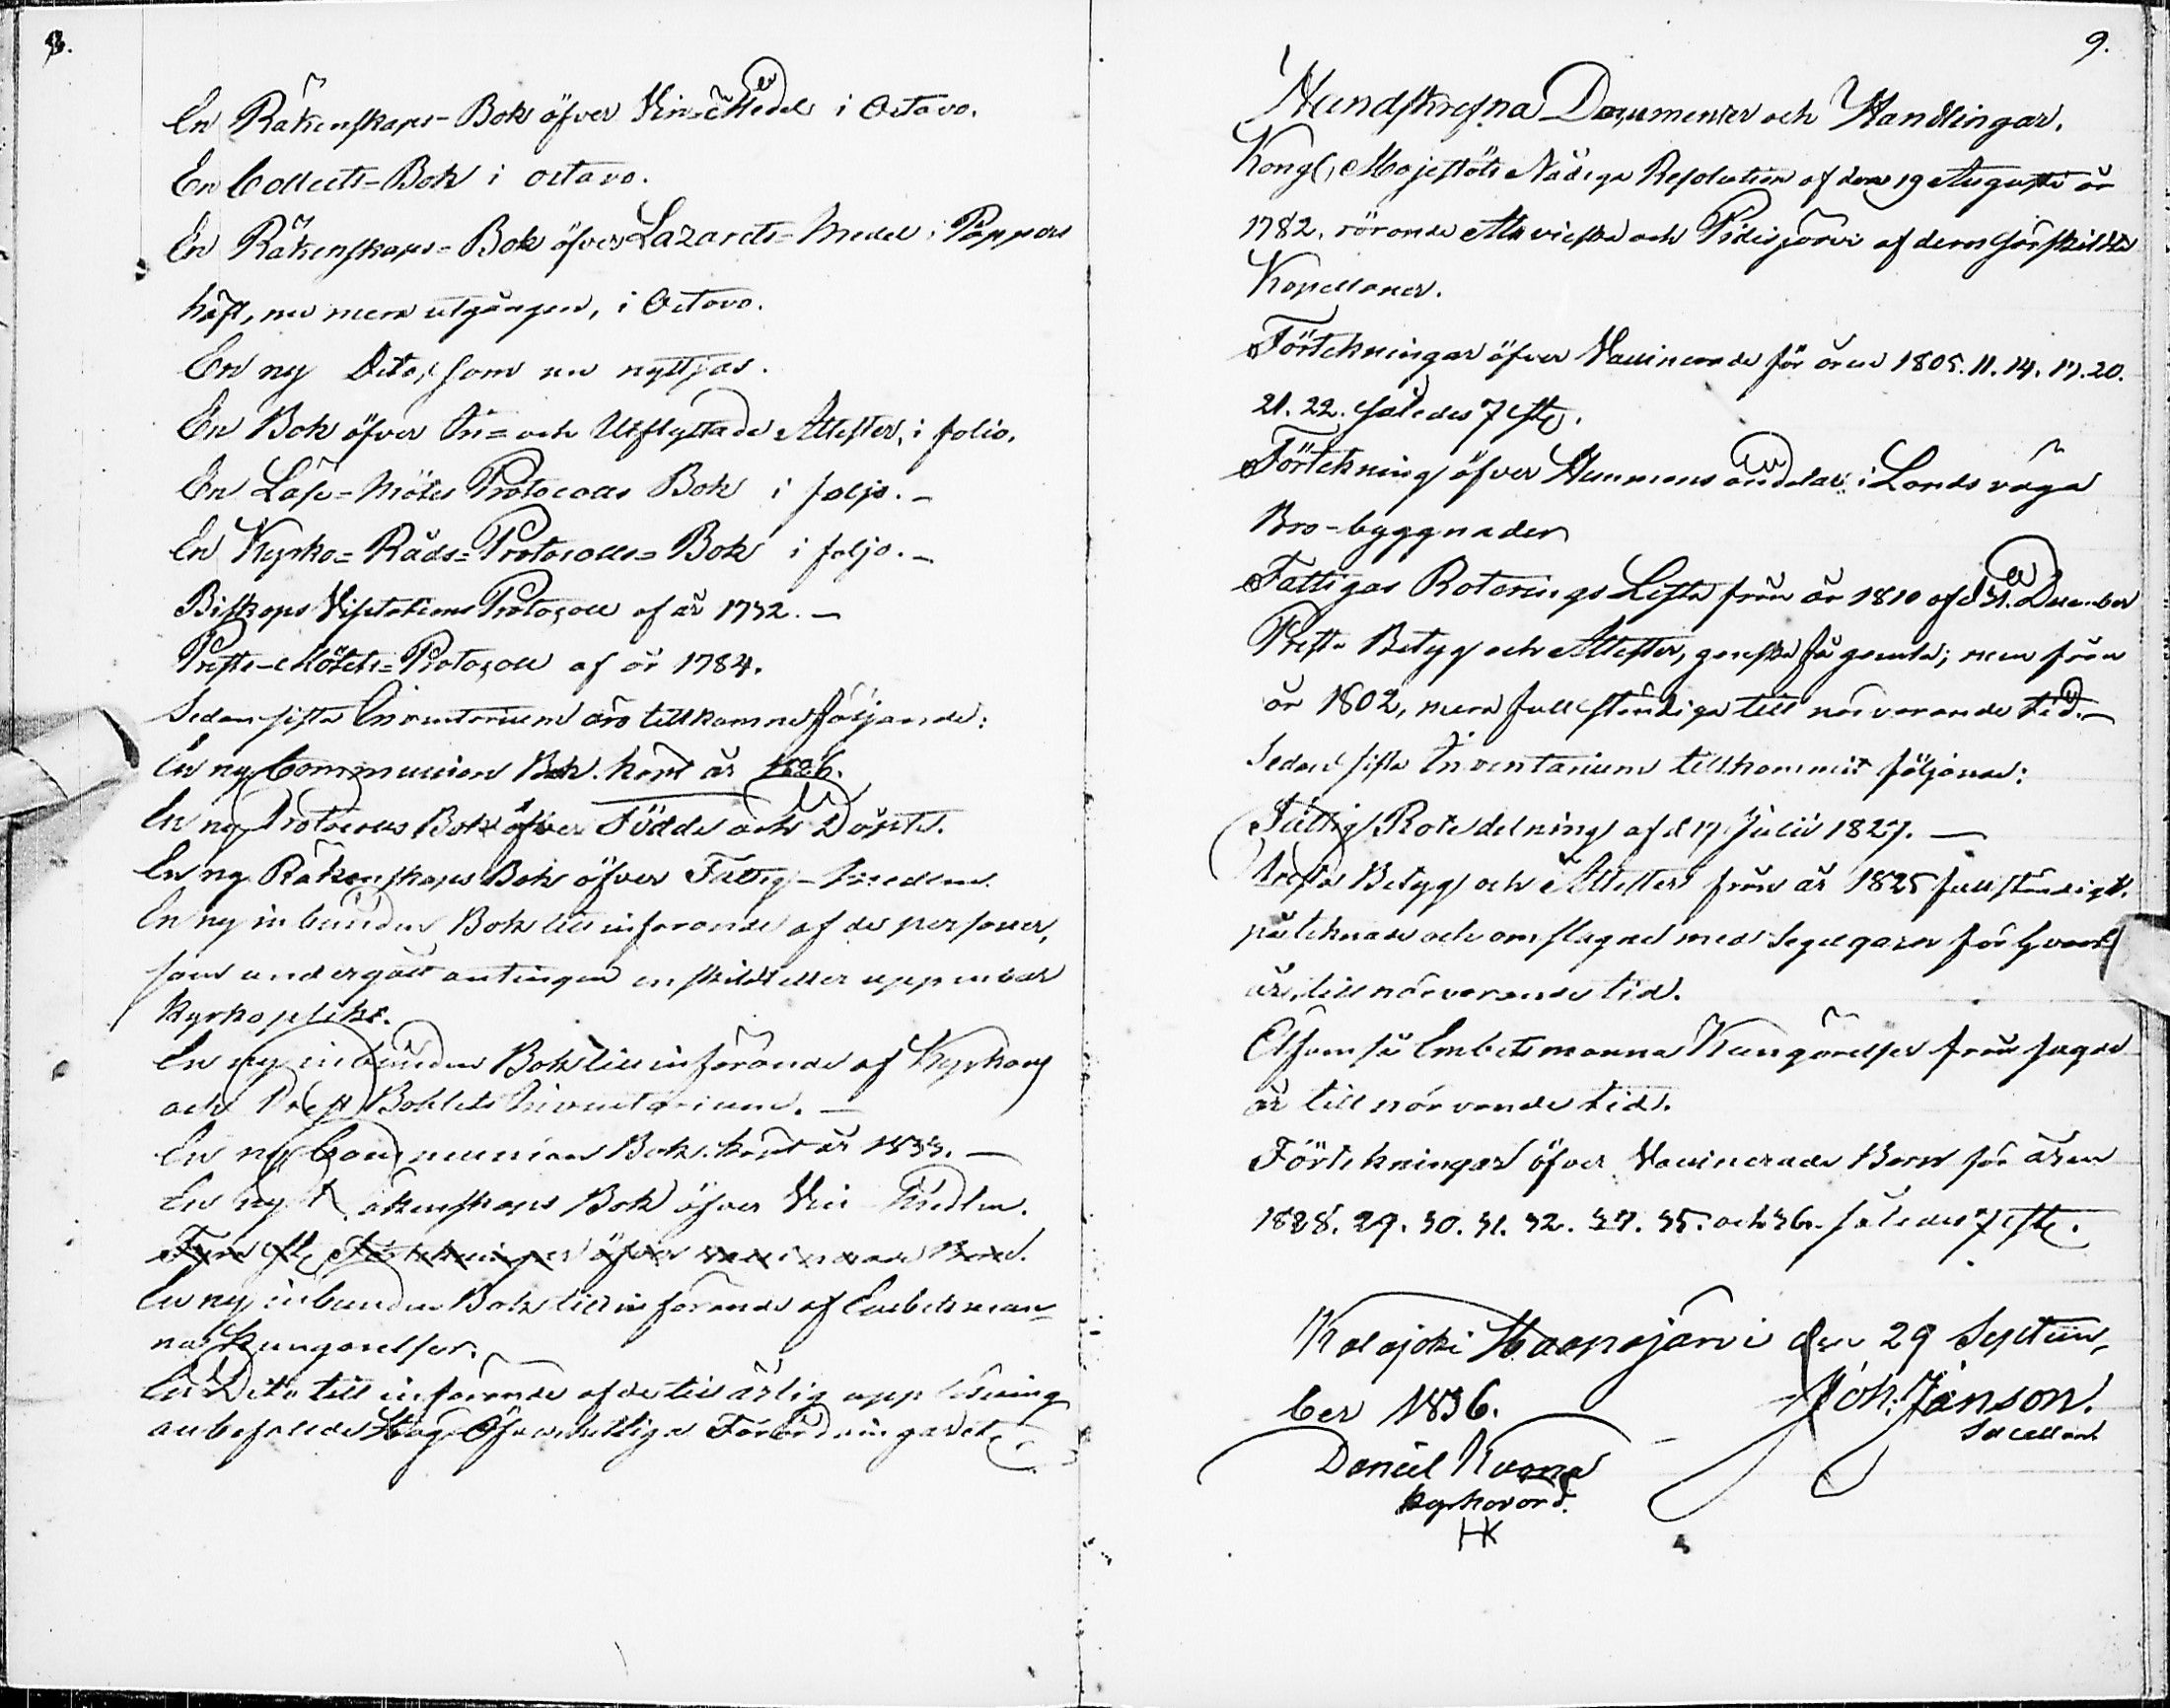 8.
En Räkenskaps-Bok öfver Vin-Medel i Octavo.
En Collects-Bok i octavo.
En Räkenskaps-Bok öfver Lazarets-Medel i Pappers
häft, nu mera utgången, i Octavo.
En ny Dito, som nu nyttjas.
En Bok öfver In- och Utflyttade Attester, i folio.
En Läse-Mötes Protocolls Bok i folio.-
En Kyrko-Råds-Protocolls-Bok i folio.-
Biskops Visitations Protocoll af år 1732.-
Prests-Mötets-Protocoll af år 1784.
Sedan sista Inventarium äro tillkomne följande:
En ny Communion Bok. köpt år 1826.
En ny Protocolls Bok öfver Födde och Döpte.
En ny Räkenskaps Bok öfver Fattig-Medlen.
En ny inbunden Bok till införande af de personer,
som undergått antingen enskild eller uppenbar
Kyrkoplikt.
En ny inbunden Bok till införande af Kyrkans
och Prest Bohlets Inventarium.-
En ny Communion Bok. köpt år 1833.-
En ny Räkenskaps Bok öfver Vin Medlen.
Fyra st. Förtekningar öfver vaccinerade Barn.
En ny, inbunden Bok till införande af Embetsman-
na Kungörelser.
En Dito till införande af de till årlig uppläsning
anbefallde Höga Öfverhetliga Förordningar etc
9.
Handskrefna Documenter och Handlingar.
Kongl, Majestäts Nådiga Resolution af den 19 Augusti år
1782, rörande Alavieska och Pidisjärvi af dem särskildta
Kapellaner.
Förtekningar öfver Vaccinerade för åren 1805. 11. 14. 17. 20.
21. 22. således 7 st.
Förtekning öfver Hemmans andelar i Lands väga
Bro-byggnader
Fattigas Roterings Lista från år 1810 af d 31. December
Prest- Betyg och Attester, ganska få gamla; men från
år 1802, mera fullständiga till närvarande tid.-
Sedan sista Inventarium tillkommit följande:
Fattig Rotedelning af d 17 Julii 1827.-
Prest Betyg och Attester från år 1825 fullständigt.
påteknade och omslagne med Segelgarn för hvart
år, till närvarande tid.
Äfvenså Embetsmanna Kungörelser från sagde
år till närvande tid.
Förtekningar öfver Vaccinerade Barn för åren
1828. 29. 30. 31. 32. 33. 35. och 36. således 7 st.
Kalajoki Haapajärvi den 29 Septem-
ber 1836.
Joh: Janson.
Sacellan
Daniel Kuona
Kyrkovärd.
HK